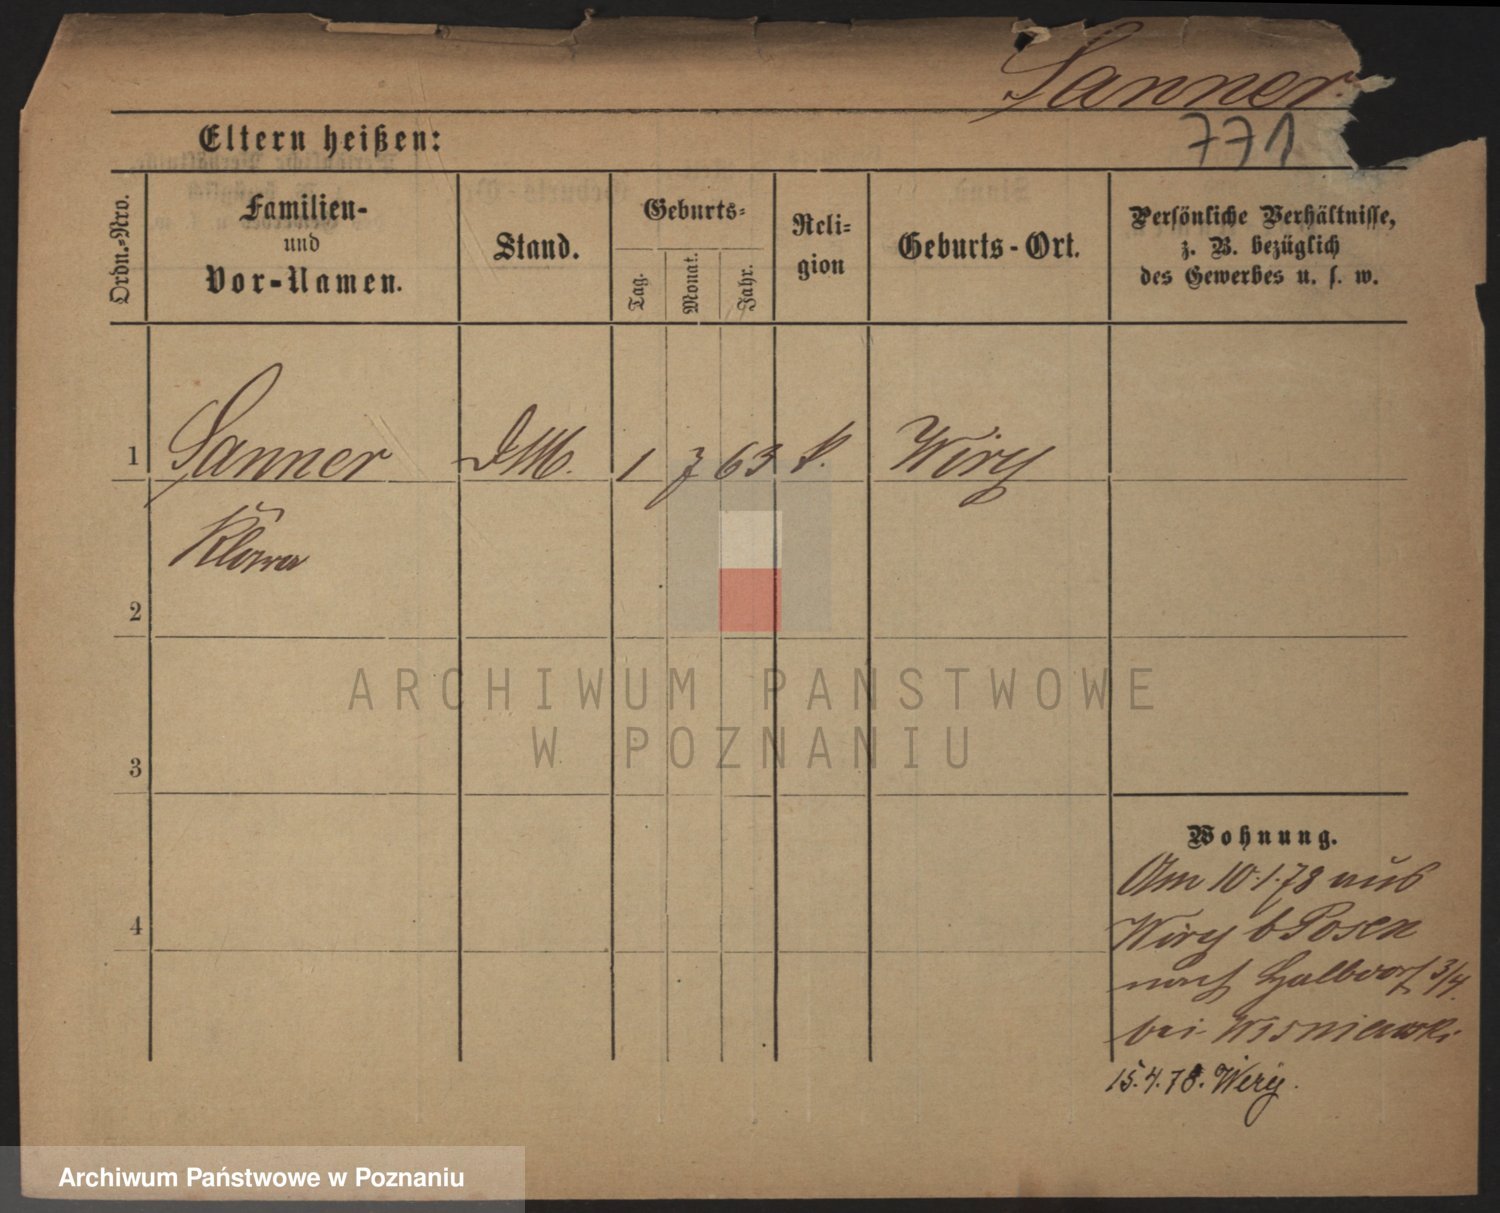 Sanner
771
Eltern heißen:
Ordn.-Nro.
Familien-
und
Vor-Namen.
Stand.
Geburts-
Tag.
Monat.
Jahr.
Reli-
gion
Geburts-Ort.
Persönliche Verhältnisse,
z. B. bezüglich
des Gewerbes u. s. w.
1 Sanner DM. 1 7 63 k. Wiry
Klara
2
3
4
Wohnung.
Am 10.1.78 aus
Wiry b Posen
nach Halbdorf 3/4.
bei Wisniewski
15.4.78. Wiry.
ARCHIWUM PAŃSTWOWE
W POZNANIU
Archiwum Państwowe w Poznaniu